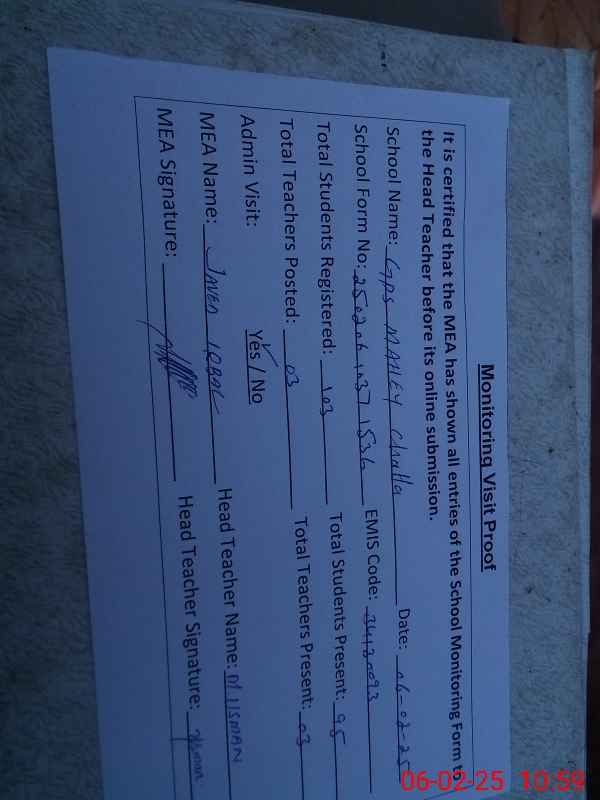 Monitoring Visit Proof
It is certified that the MEA has shown all entries of the School Monitoring Form to
the Head Teacher before its online submission.
School Name: GPS MANEY Challa Date: 06-02-25
School Form No: 25020610371536 EMIS Code: 34120093
Total Students Registered: 103 Total Students Present: 95
Total Teachers Posted: 03 Total Teachers Present: 03
Admin Visit: Yes / No
MEA Name: JAVED IQBAL Head Teacher Name: M USMAN
MEA Signature: Head Teacher Signature: Usman
06-02-25 10:59